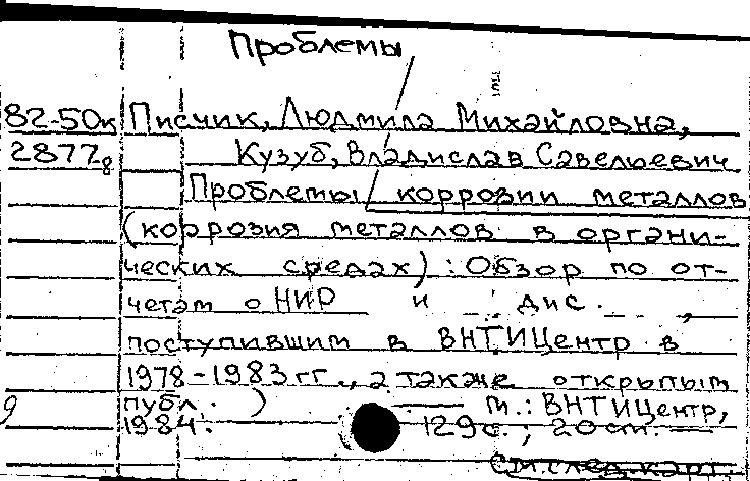 Проблемы
82-50к Писчик, Людмила Михайловна,
28778 Кузуб, Владислав Савельевич
Проблемы коррозии металлов
(коррозия металлов в органи-
ческих средах) : Обзор по от-
четам о НИР и дис.,
поступившим в ВНТИЦентр в
1978-1983 гг., а также открытым
публ. ) М.: ВНТИЦентр,
9 1984. 129 с. ; 20 см. —
См. след. карт.